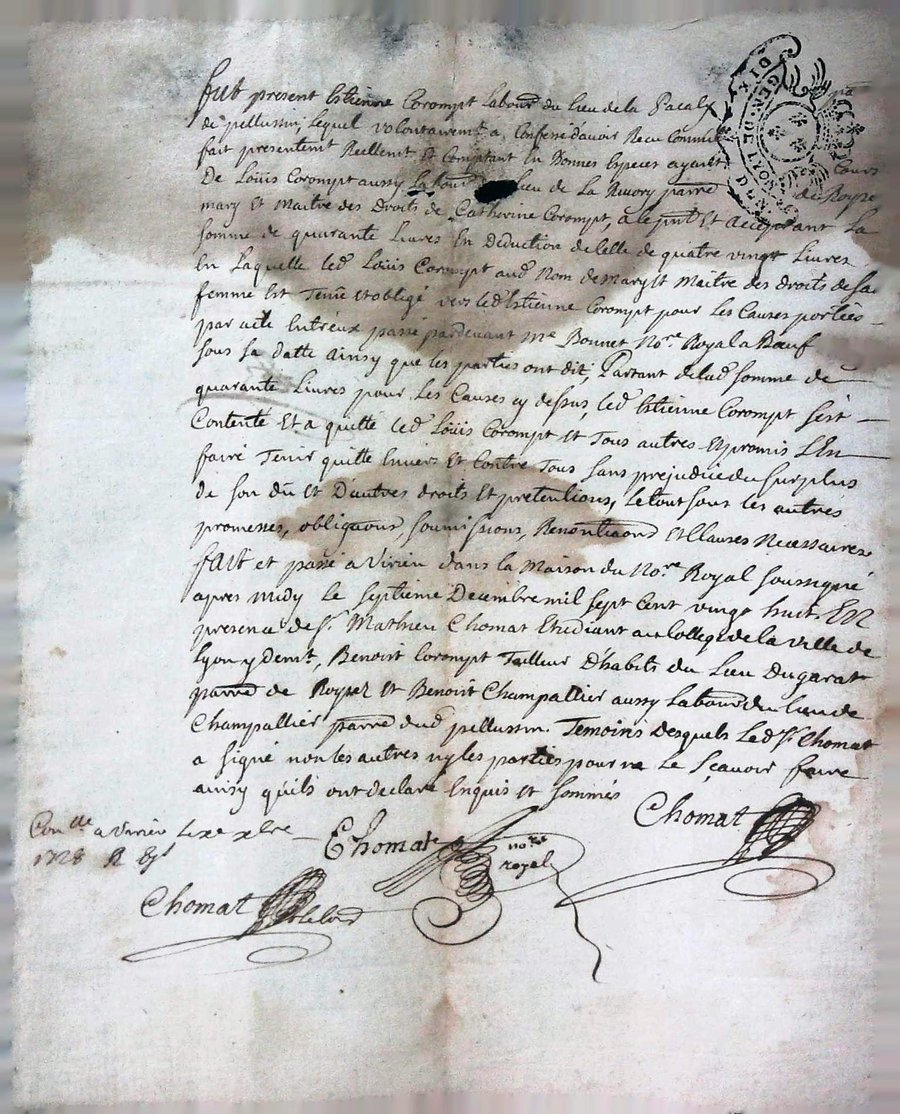 fut present Estienne Corompt Labour du lieu de la
de pellussin, Lequel volontairemt a Confessé davoir Receu Comme
fait presentemt Reellemt Et Comptant En Bonnes Especes ayant
Cours
De Loüis Corompt aussy Labour lieu de La parre de
mary Et Maitre des Droits de Catherine Corompt, a ce pnt Et acceptant La
somme de quarante Livres En deduction de Celle de quatre vingt Livres
En Laquelle led Loüis Corompt aud Nom de Mary Et Maitre des droits de sa
femme Est Tenu Et obligé vers led Estienne Corompt pour Les Causes portées
par acte Entreux passé pardevant me Bonnet Nore Royal a Bœuf
sous sa datte ainsy que les parties ont dit, Partant de lad somme de
quarante Livres pour Les Causes cy dessus, led Estienne Corompt sest
Contenté Et a quitté led Loüis Corompt Et Tous autres Et promis L'En
faire Tenir quitte Envers Et Contre Tous sans prejudice du surplus
de son dû Et D'autres droits Et pretentions, Le tout sous les autres
promesses, obligaons, soumissions, Renontiaons Et Clauses Necessaires
fait et passé a Virieu dans la Maison du Nore Royal soussigné
apres midy Le septieme Decembre mil sept Cent vingt huit. En
presence de sr Mathieu Chomat Etudiant au College de la Ville de
Lyon y demt, Benoit Corompt Tailleur D'habits du Lieu Dugarat
parre de Et Benoit Champallier aussy Labour du lieu de
Champallier parre dud pellussin. Temoins desquels Led sr Chomat
a signé non les autres ny les parties pour ne Le sçavoir faire
ainsy quils ont declaré Enquis Et sommés
Chomat
Conllé a Virieu Le xbre
1728
Chomat nore
royal
Chomat
GEN. DE LYON
DIX DEN